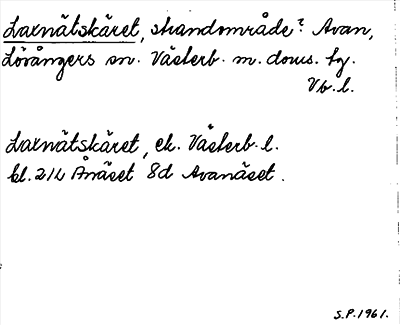 Laxnätskäret, strandområde? Avan,
Lövångers sn. Västerb. n. doms. fg.
Vb. l.
Laxnätskäret, ek. Västerb. l.
bl. 21L Ånäset 8d Avanäset.
S.P. 1961.